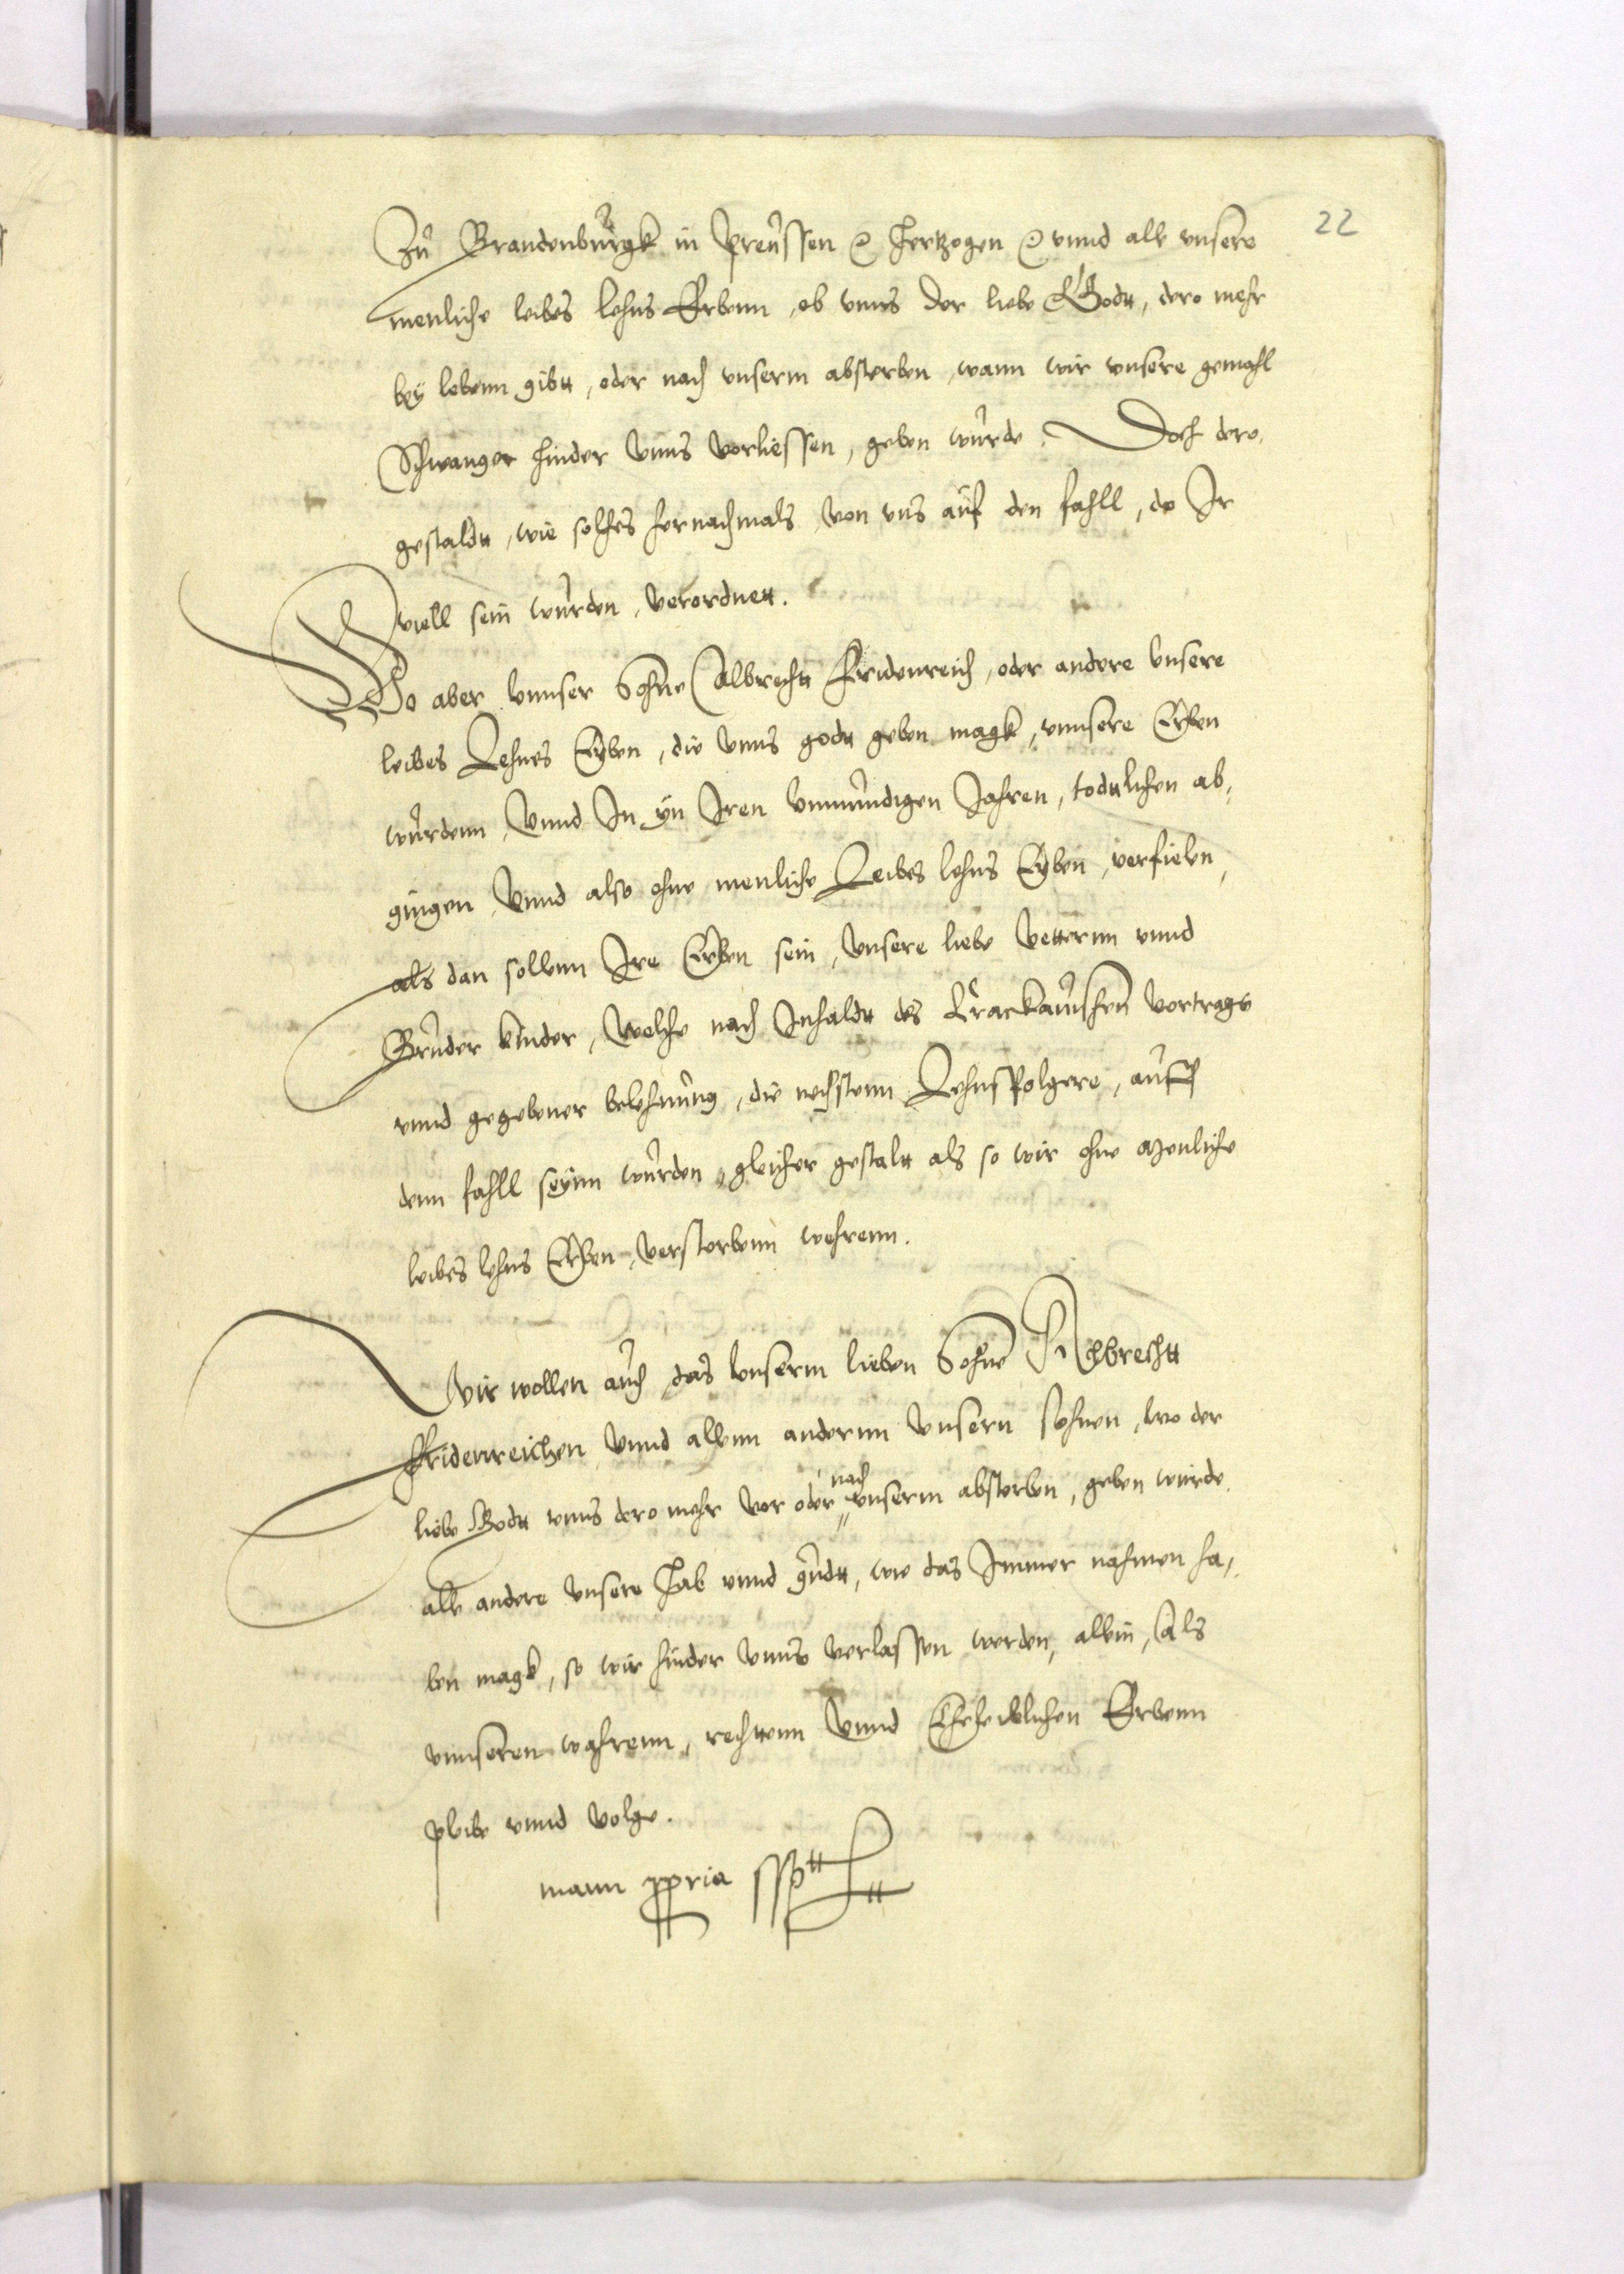 22
Zu Brandenburgk in Preussen ec Hertzogen ec vnnd alle vnsere
menliche leibes lehns Erbenn, ob vnns der liebe Godtt, dero mehr
bey lebenn gibtt, oder nach vnserm absterben, wann wir vnsere gemahl
Schwanger hinder vnns vorliessen, geben wurde. Doch dero
gestaldtt, wie solches hernachmals von vns auf den fahll, do Ir
viell sein wurden, verordnett.
Do aber vnnser Sohne Albrechtt Fridenreich, oder andere vnsere
leibes Lehnes Erben, die vnns godtt geben magk, vnnsere Erben
wurdenn, Vnnd In yn Iren vnmundigen Jahren, todttlichen ab,
gingen Vnnd also ohne menliche Leibes lehns Erben, verfielen,
als dan sollenn Ire Erben sein, Vnsere liebe Vetternn vnnd
Bruder kinder, Welche nach Inhaldtt des Crackauischen vortrags
vnnd gegebener belehnung, die nechstenn Lehnsfolgere, auff
denn fahll seynn wurden, gleicher gestaltt als so wir ohne Menliche
leibes lehns Erben, verstorbenn wehrenn.
Wir wollen auch das vnserm lieben Sohne Albrechtt
Fridenreichen Vnnd allenn andernn Vnsern sohnen, wo der
liebe Godtt vnns dero mehr vor oder nach vnserm absterben, geben wurde
alle andere Vnsere Hab vnnd gudtt, wie das Immer nahmen ha,
ben magk, so wir hinder Vnns verlassen werden, allein, Als
vnnseren wahrenn, rechttenn Vnnd Eheleiblichen Erbenn
pleibe vnnd volge.
manu ppria sspt